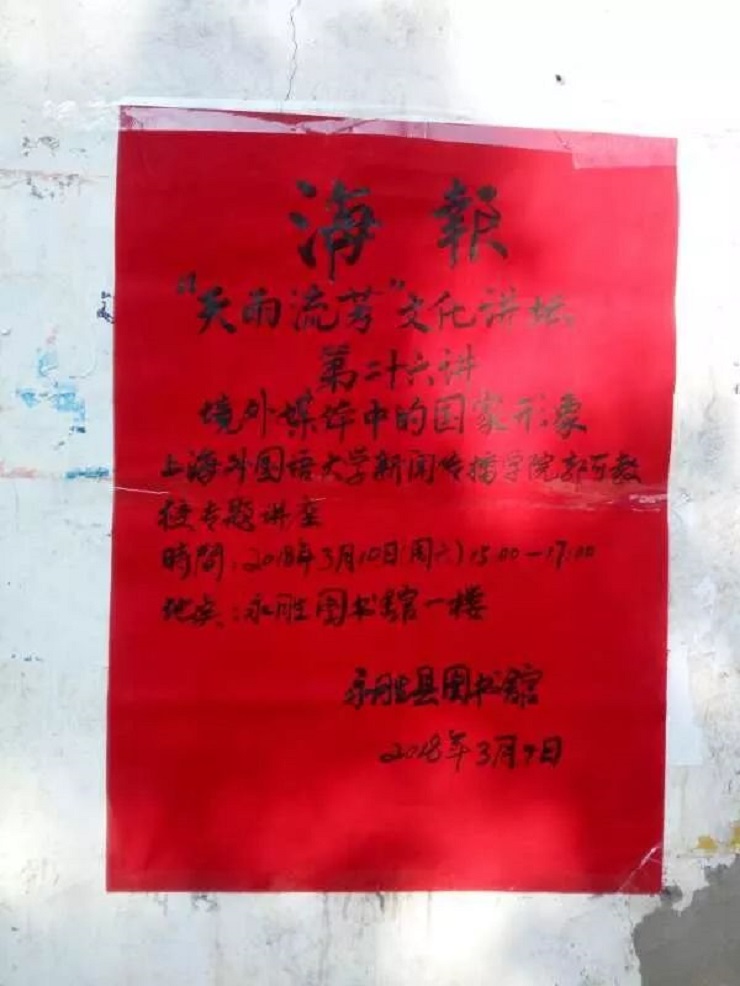 海報
"天雨流芳"文化讲坛
第二十六讲
境外媒体中的国家形象
上海外国语大学新闻传播学院郭可教
授专题讲座
時間:2018年3月10日(周六)15:00—17:00
地点:永胜图书館一楼
永胜县图书館
2018年3月7日